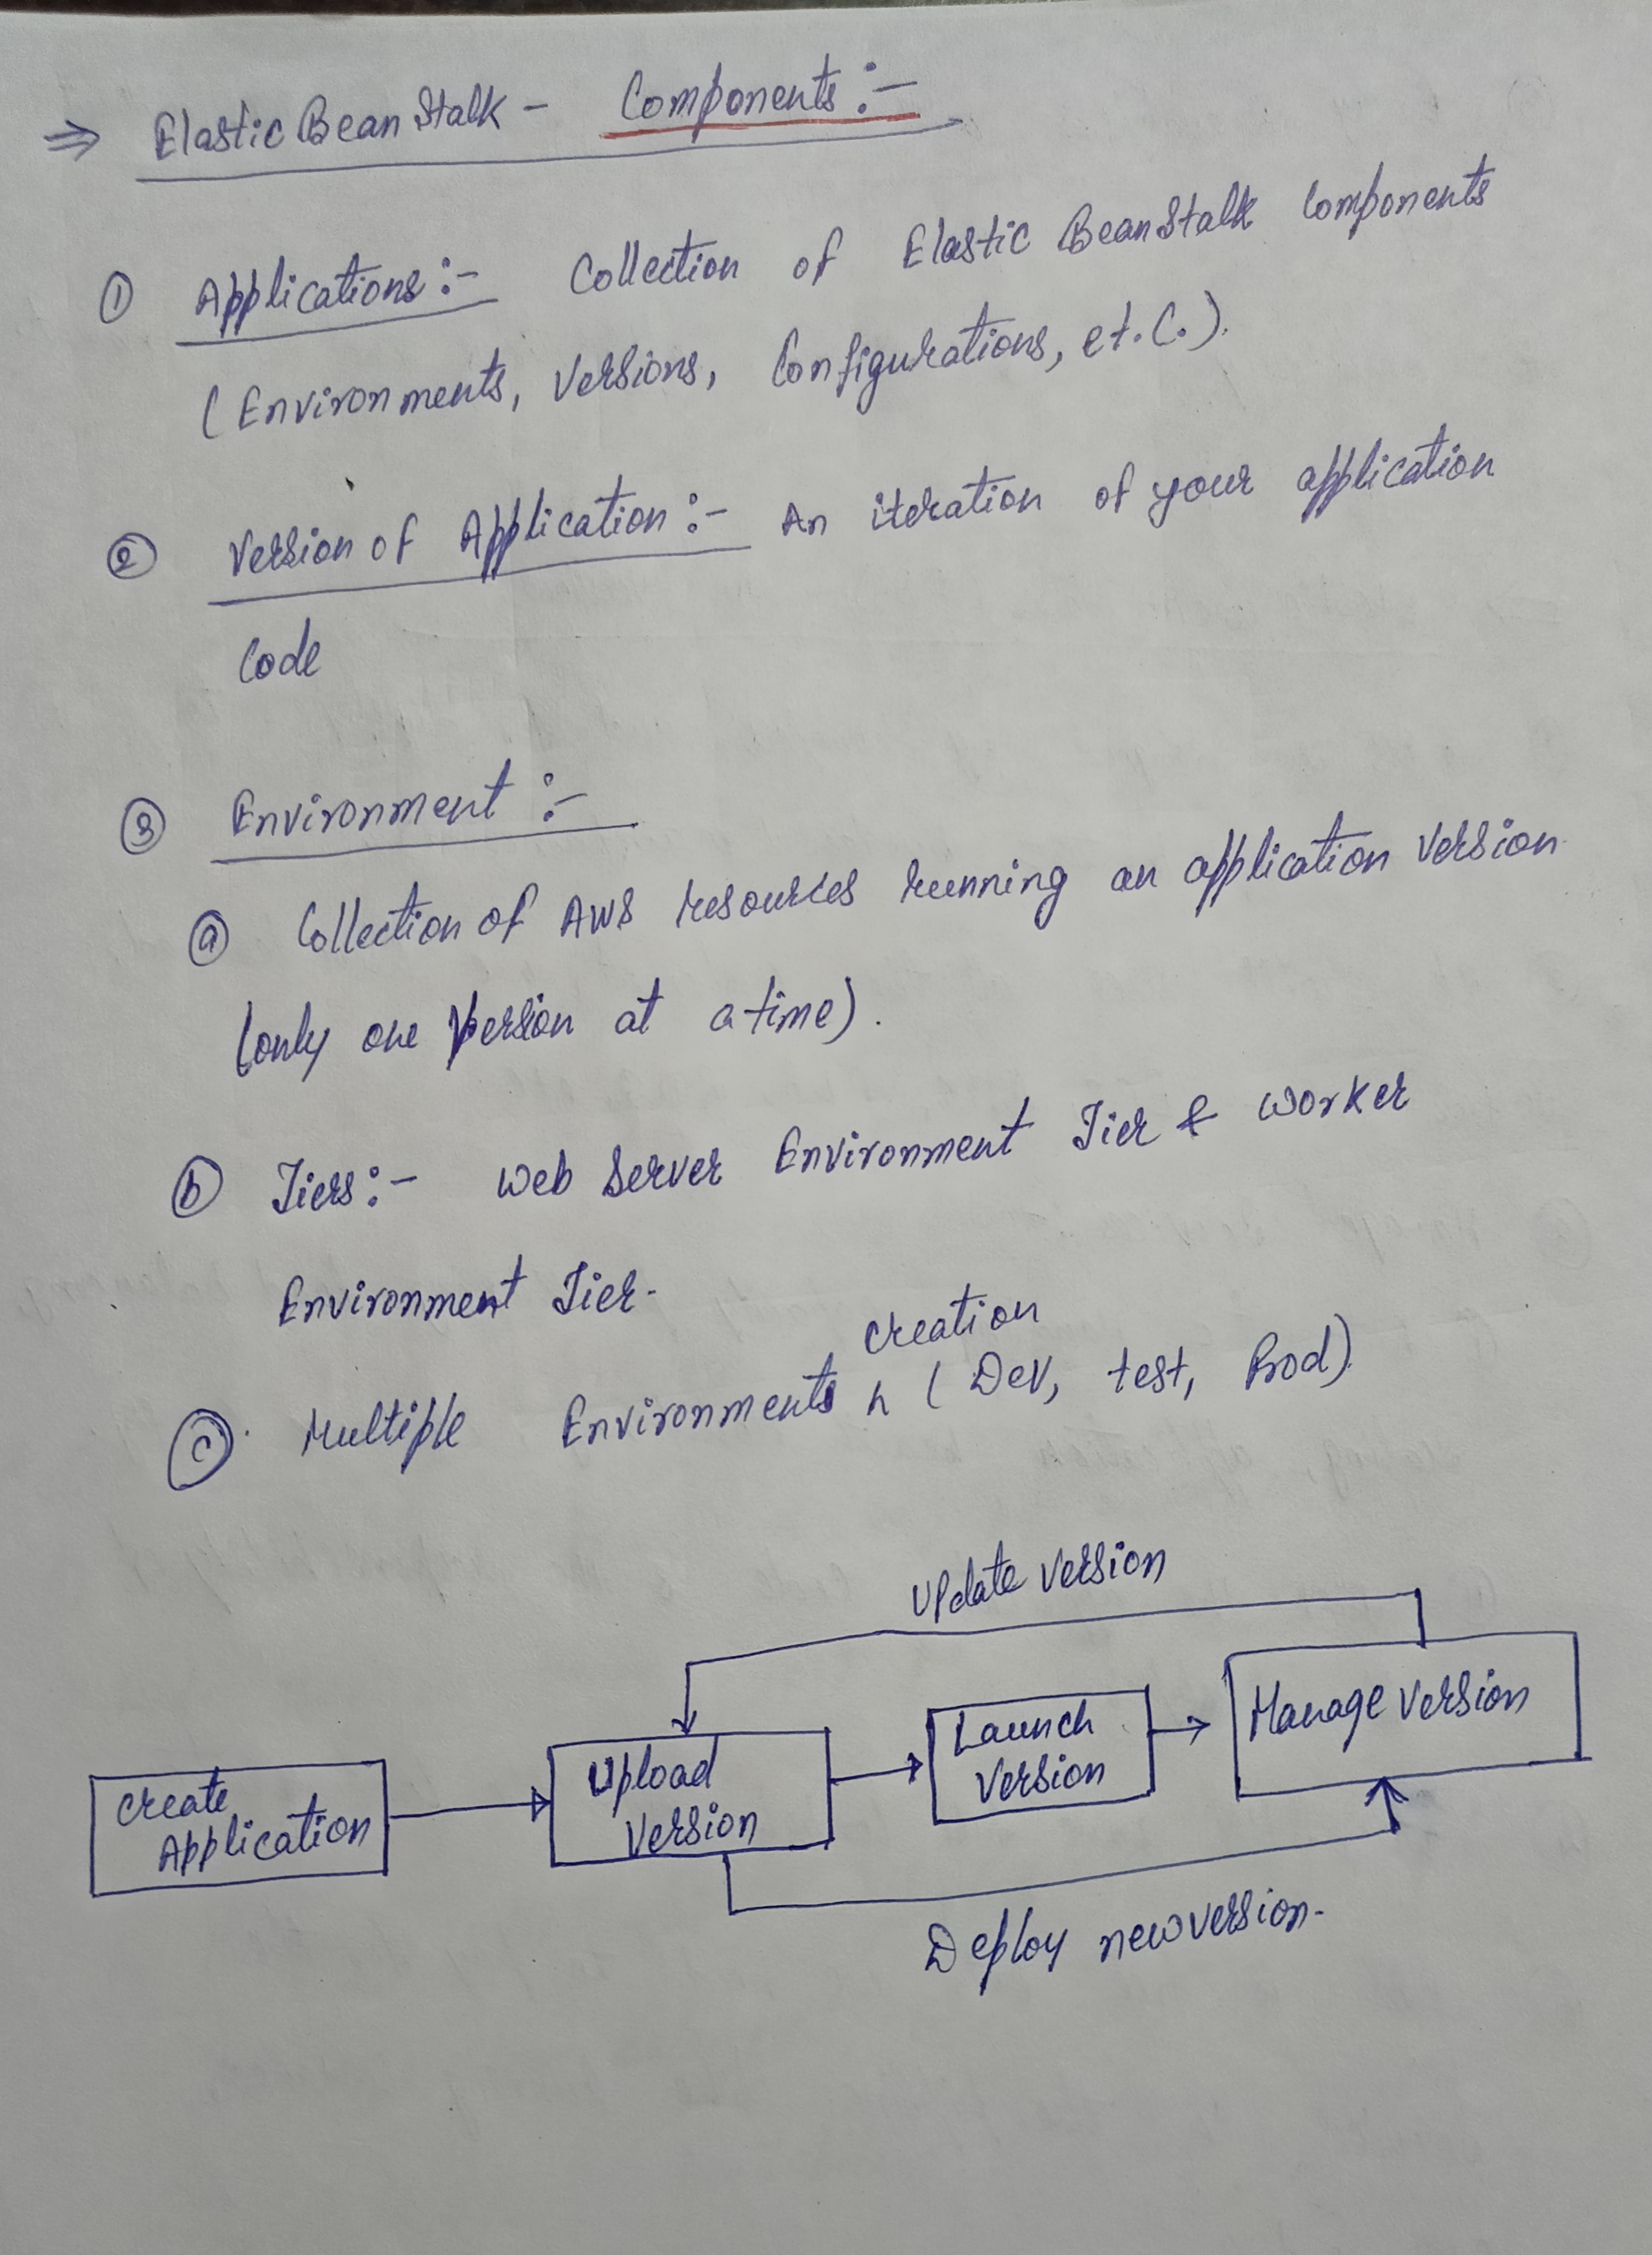 ⇒ Elastic Bean Stalk - Components :-
① Applications :- Collection of Elastic Bean Stalk Components
(Environments, Versions, Configurations, et.C.).
② Version of Application :- An iteration of your application
Code
③ Environment :-
ⓐ Collection of AWS resources running an application Version
(only one Version at a time).
ⓑ Tiers :- Web Server Environment Tier & Worker
Environment Tier.
creation
ⓒ. Multiple Environments ^ (Dev, test, Prod).
Update Version
Create
Application
Upload
Version
Launch
Version
Manage Version
Deploy new version.